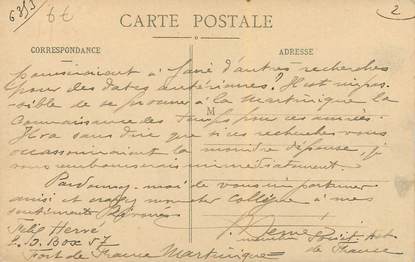 6353
6t
2
CARTE POSTALE
CORRESPONDANCE
ADRESSE
à faire d'autres recherches
pour des dates antérieures? Il est impos-
sible de se procurer à la Martinique la
Connaissance des Temps pour ces années.
Il va sans dire que si ces recherches vous
M
occasionnaient la moindre dépense, je
vous rembourserais immédiatement.
Pardonnez-moi de vous importuner
ainsi et croyez mon cher collègue à mes
sentiments
Félix Hervé
P.O. Box 57
membre Société Ast
de France
Fort de France Martinique